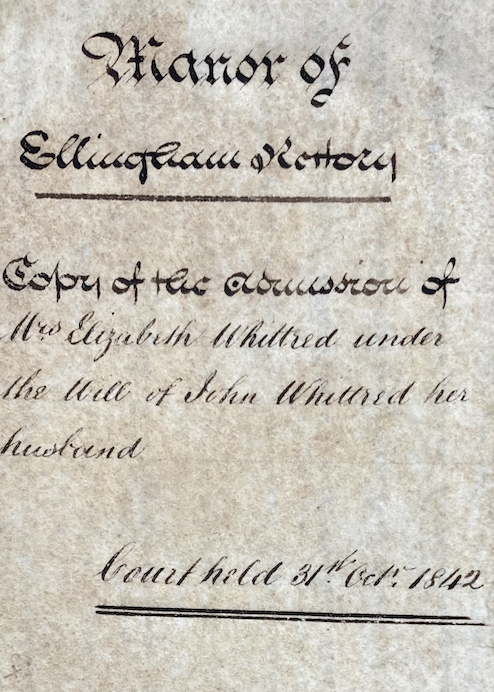 Manor of
Ellingham Rectory
Copy of the Admission of
Mrs Elizabeth Whittred under
the Will of John Whittred her
husband
Court held 31st Octr. 1842